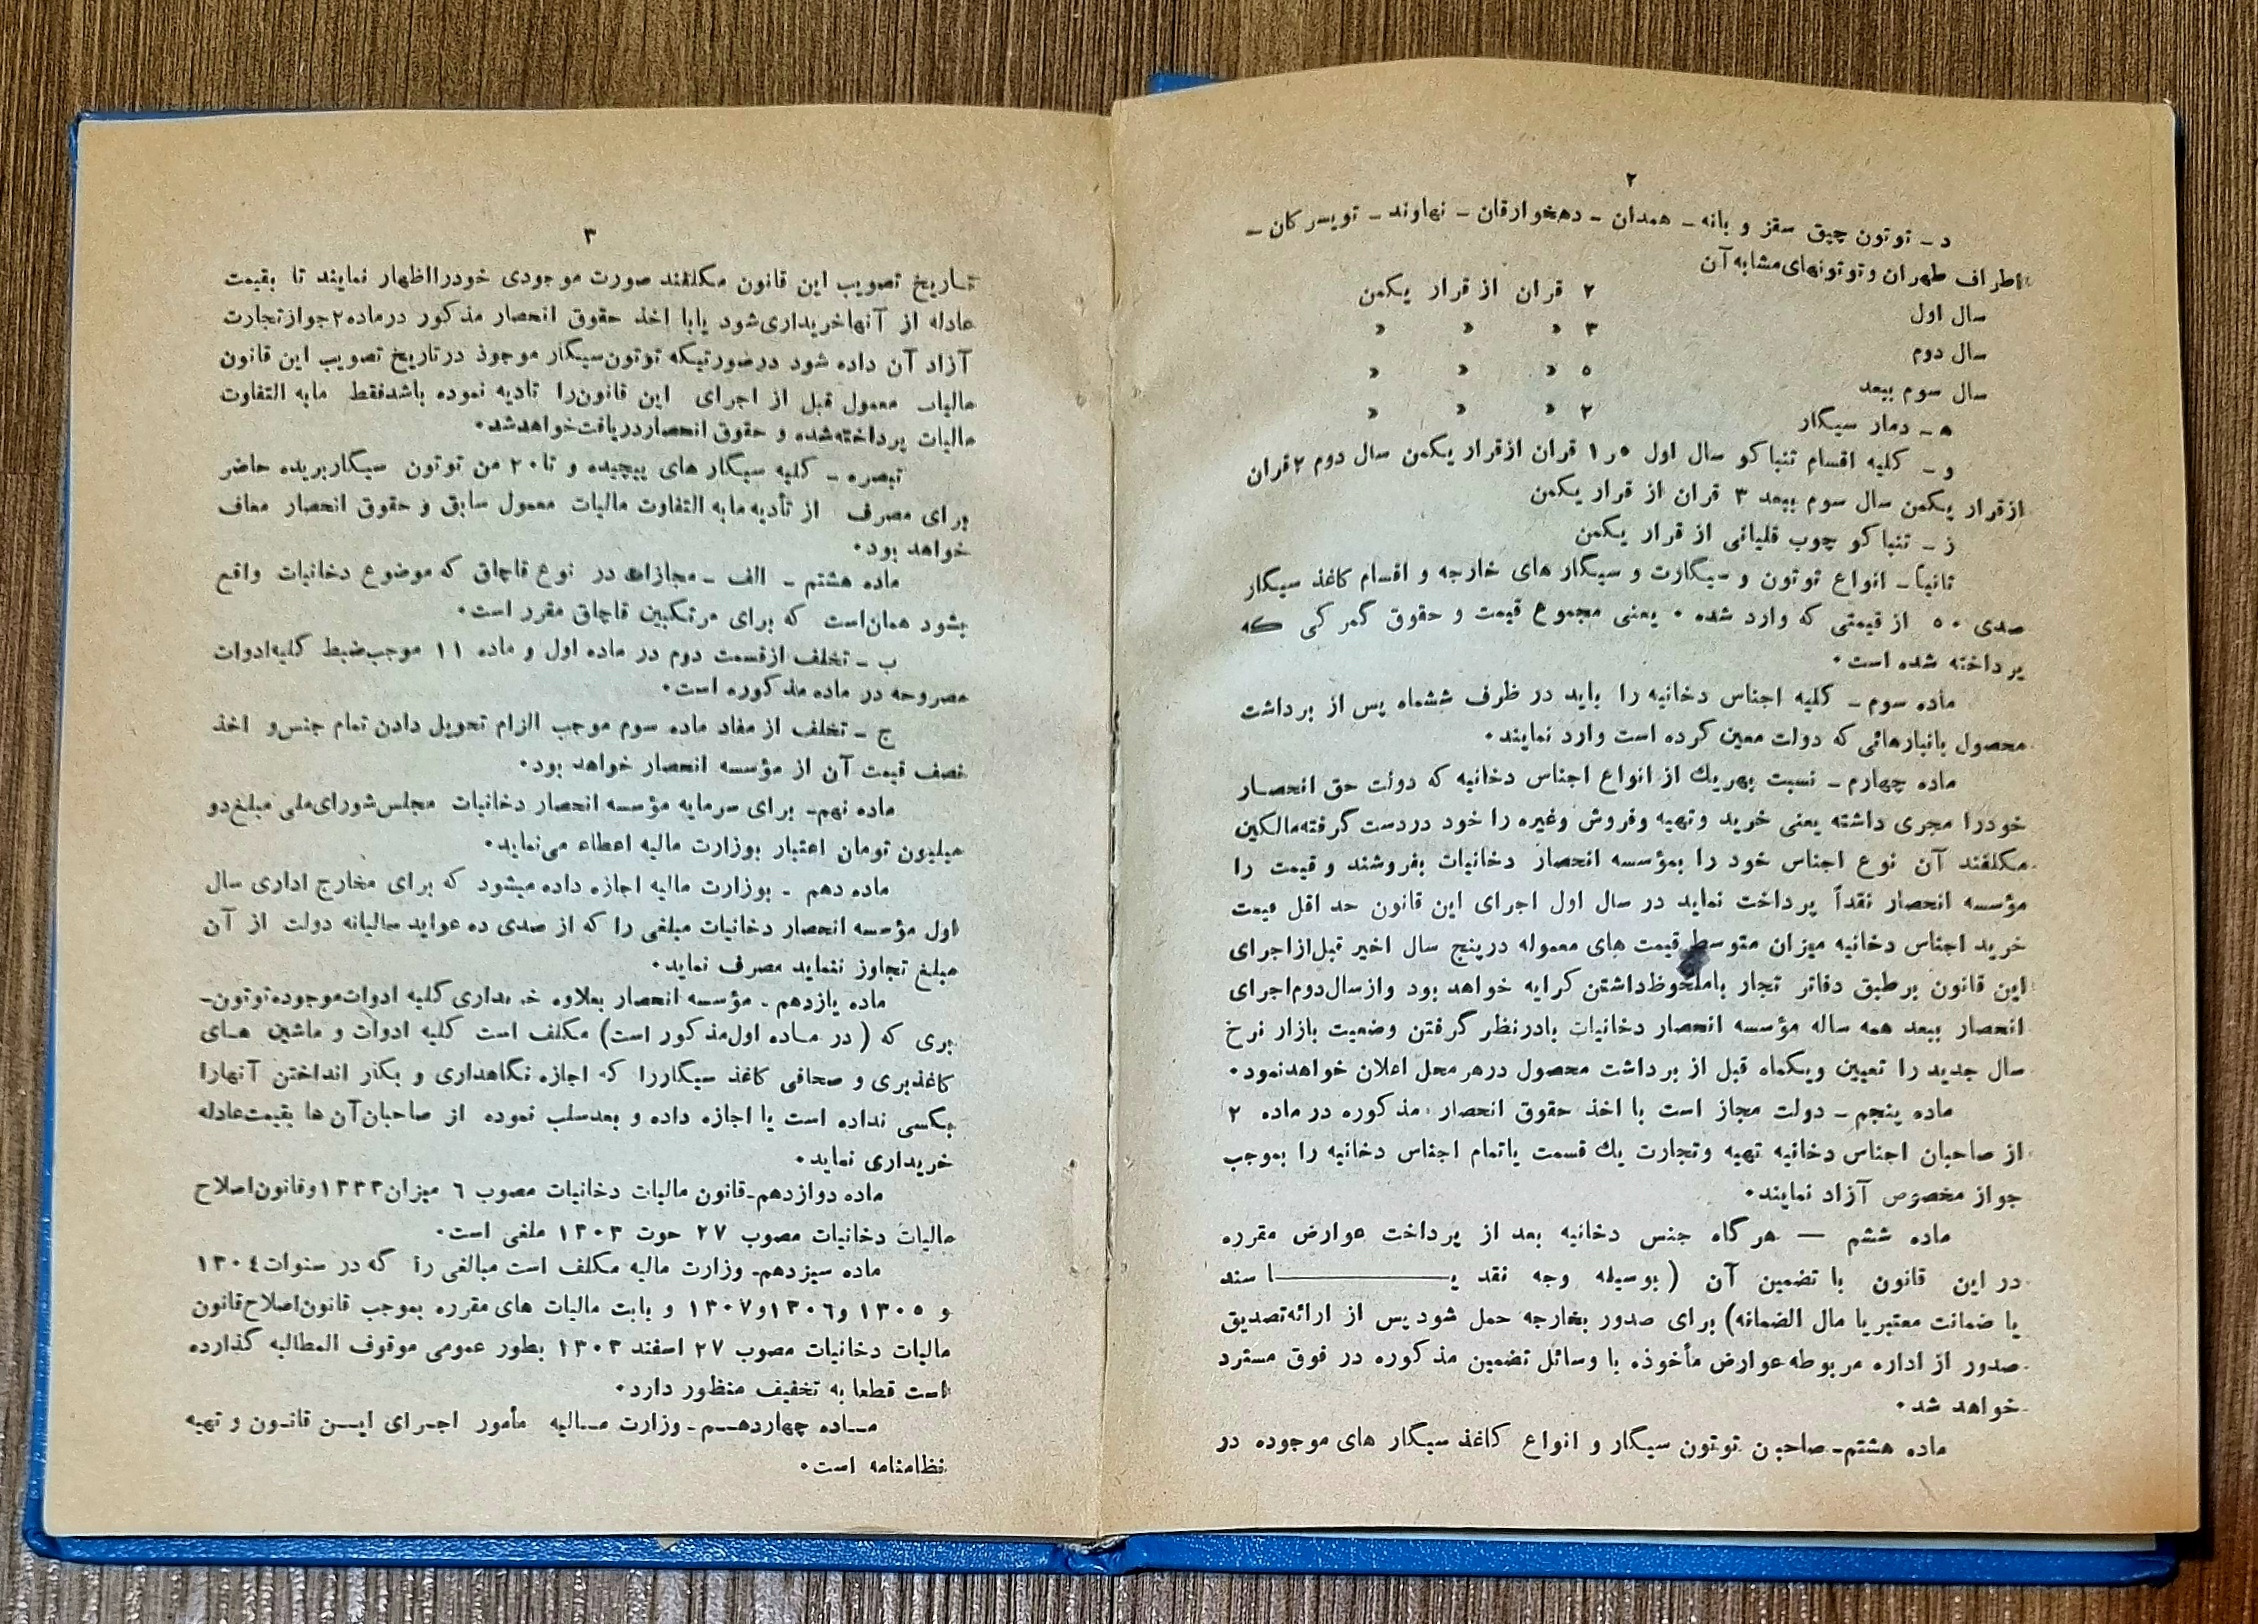 ۲
د ـ توتون چپق سقز و بانه ـ همدان ـ دهخوارقان ـ نهاوند ـ تویسرکان ـ
اطراف طهران و توتونهای مشابه آن
سال اول ۲ قران از قرار یکمن
سال دوم ۳ » » »
سال سوم ببعد ۵ » » »
ه ـ دمار سیگار ۲ » » »
و ـ کلیه اقسام تنباکو سال اول ۱٫۵ قران ازقرار یکمن سال دوم ۲ قران
ازقرار یکمن سال سوم ببعد ۳ قران از قرار یکمن
ز ـ تنباکو چوب قلیانی از قرار یکمن
ثانیاً ـ انواع توتون و سیگارت و سیگار های خارجه و اقسام کاغذ سیگار
صدی ۵۰ از قیمتی که وارد شده ۰ یعنی مجموع قیمت و حقوق گمرکی که
پرداخته شده است ۰
ماده سوم ـ کلیه اجناس دخانیه را باید در ظرف ششماه پس از برداشت
محصول بانبارهائی که دولت معین کرده است وارد نمایند ۰
ماده چهارم ـ نسبت بهریك از انواع اجناس دخانیه که دولت حق انحصار
خودرا مجری داشته یعنی خرید وتهیه وفروش وغیره را خود دردست گرفته مالکین
مکلفند آن نوع اجناس خود را بمؤسسه انحصار دخانیات بفروشند و قیمت را
مؤسسه انحصار نقداً پرداخت نماید در سال اول اجرای این قانون حد اقل قیمت
خرید اجناس دخانیه میزان متوسط قیمت های معموله درپنج سال اخیر قبل ازاجرای
این قانون برطبق دفاتر تجار باملحوظ داشتن کرایه خواهد بود وازسال دوم اجرای
انحصار ببعد همه ساله مؤسسه انحصار دخانیات بادرنظر گرفتن وضعیت بازار نرخ
سال جدید را تعیین ویکماه قبل از برداشت محصول درهرمحل اعلان خواهدنمود ۰
ماده پنجم ـ دولت مجاز است با اخذ حقوق انحصار مذکوره در ماده ۲
از صاحبان اجناس دخانیه تهیه وتجارت یك قسمت یاتمام اجناس دخانیه را بموجب
جواز مخصوص آزاد نمایند ۰
ماده ششم — هرگاه جنس دخانیه بعد از پرداخت عوارض مقرره
در این قانون با تضمین آن ( بوسیله وجه نقد یـــــــا سند
یا ضمانت معتبر یا مال الضمانه) برای صدور بخارجه حمل شود پس از ارائه تصدیق
صدور از اداره مربوطه عوارض مأخوذه با وسائل تضمین مذکوره در فوق مسترد
خواهد شد ۰
ماده هشتم ـ صاحبن توتون سیگار و انواع کاغذ سیگار های موجوده در
۳
تـاریخ تصویب این قانون مکلفند صورت موجودی خودرااظهار نمایند تا بقیمت
عادله از آنها خریداری شود یابا اخذ حقوق انحصار مذکور درماده ۲ جواز تجارت
آزاد آن داده شود درصورتیکه توتون سیگار موجوذ درتاریخ تصویب این قانون
مالیات معمول قبل از اجرای این قانون را تادیه نموده باشد فقط مابه التفاوت
مالیات پرداخته شده و حقوق انحصار دریافت خواهدشد ۰
تبصره ـ کلیه سیگار های پیچیده و تا ۲۰ من توتون سیگاربریده حاضر
برای مصرف از تأدیه مابه التفاوت مالیات معمول سابق و حقوق انحصار معاف
خواهد بود ۰
ماده هشتم ـ الف ـ مجازات در نوع قاچاق که موضوع دخانیات واقع
بشود همان است که برای مرتکبین قاچاق مقرر است ۰
ب ـ تخلف ازقسمت دوم در ماده اول و ماده ۱۱ موجب ضبط کلیه ادوات
مصروحه در ماده مذکوره است ۰
ج ـ تخلف از مفاد ماده سوم موجب الزام تحویل دادن تمام جنس و اخذ
نصف قیمت آن از مؤسسه انحصار خواهد بود ۰
ماده نهم ـ برای سرمایه مؤسسه انحصار دخانیات مجلس شورای ملی مبلغ دو
میلیون تومان اعتبار بوزارت مالیه اعطاء می‌نماید ۰
ماده دهم ـ بوزارت مالیه اجازه داده میشود که برای مخارج اداری سال
اول مؤسسه انحصار دخانیات مبلغی را که از صدی ده عواید سالیانه دولت از آن
مبلغ تجاوز ننماید مصرف نماید ۰
ماده یازدهم ـ مؤسسه انحصار بعلاوه خریداری کلیه ادوات موجوده توتون ـ
بری که ( در مـاده اول مذکور است) مکلف است کلیه ادوات و ماشین هـای
کاغذبری و صحافی کاغذ سیگاررا که اجازه نگاهداری و بکار انداختن آنهارا
بکسی نداده است یا اجازه داده و بعدسلب نموده از صاحبان آن ها بقیمت عادله
خریداری نماید ۰
ماده دوازدهم ـ قانون مالیات دخانیات مصوب ۶ میزان ۱۳۳۳ وقانون اصلاح
مالیات دخانیات مصوب ۲۷ حوت ۱۳۰۳ ملغی است ۰
ماده سیزدهم ـ وزارت مالیه مکلف است مبالغی را که در سنوات ۱۳۰۴
و ۱۳۰۵ و۱۳۰۶ و۱۳۰۷ و بابت مالیات های مقرره بموجب قانون اصلاح قانون
مالیات دخانیات مصوب ۲۷ اسفند ۱۳۰۳ بطور عمومی موقوف المطالبه گذارده
است قطعا به تخفیف منظور دارد ۰
مـاده چهاردهـم ـ وزارت مـالیه مأمور اجـرای ایـن قانـون و تهیه
نظامنامه است ۰